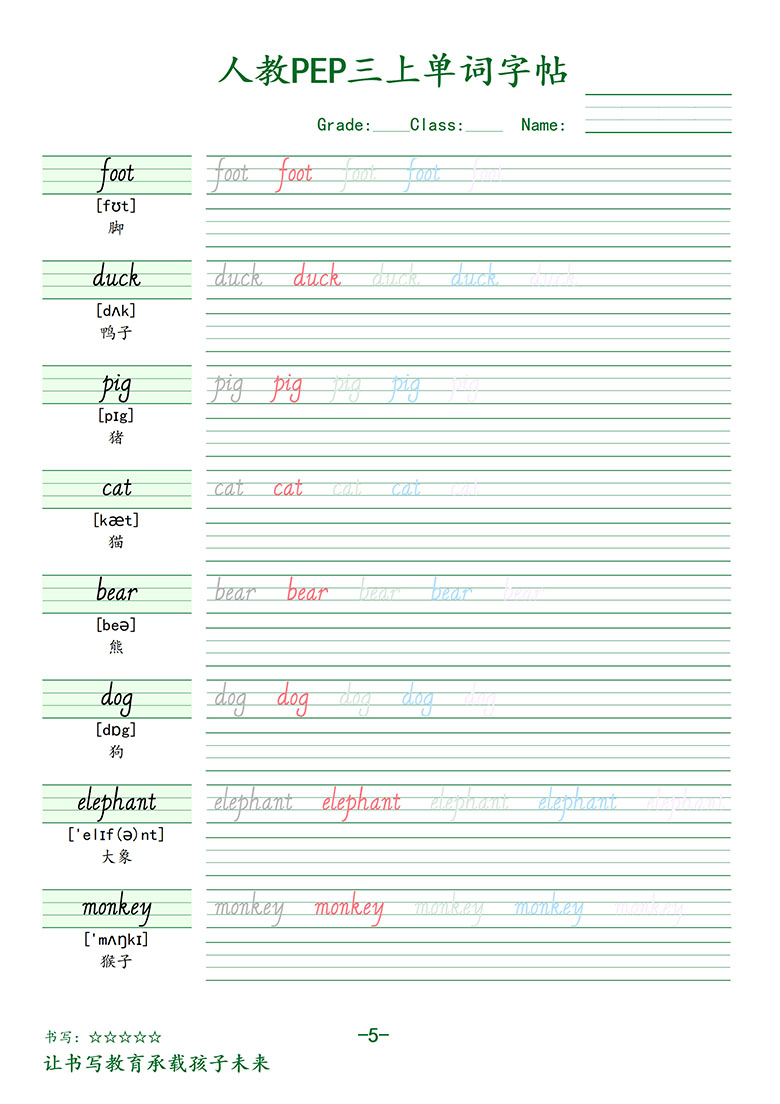 人教PEP三上单词字帖
Grade:____Class:____ Name:
foot foot foot foot foot foot
[fʊt]
脚
duck duck duck duck duck duck
[dʌk]
鸭子
pig pig pig pig pig pig
[pɪg]
猪
cat cat cat cat cat cat
[kæt]
猫
bear bear bear bear bear bear
[beə]
熊
dog dog dog dog dog dog
[dɒg]
狗
elephant elephant elephant elephant elephant elephant
[ˈelɪf(ə)nt]
大象
monkey monkey monkey monkey monkey monkey
[ˈmʌŋkɪ]
猴子
书写: ☆☆☆☆☆
-5-
让书写教育承载孩子未来